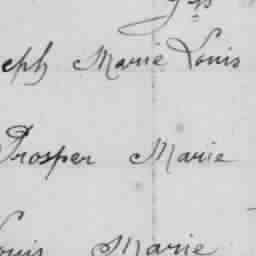 eph Marie Louis
Prosper Marie
Louis Marie